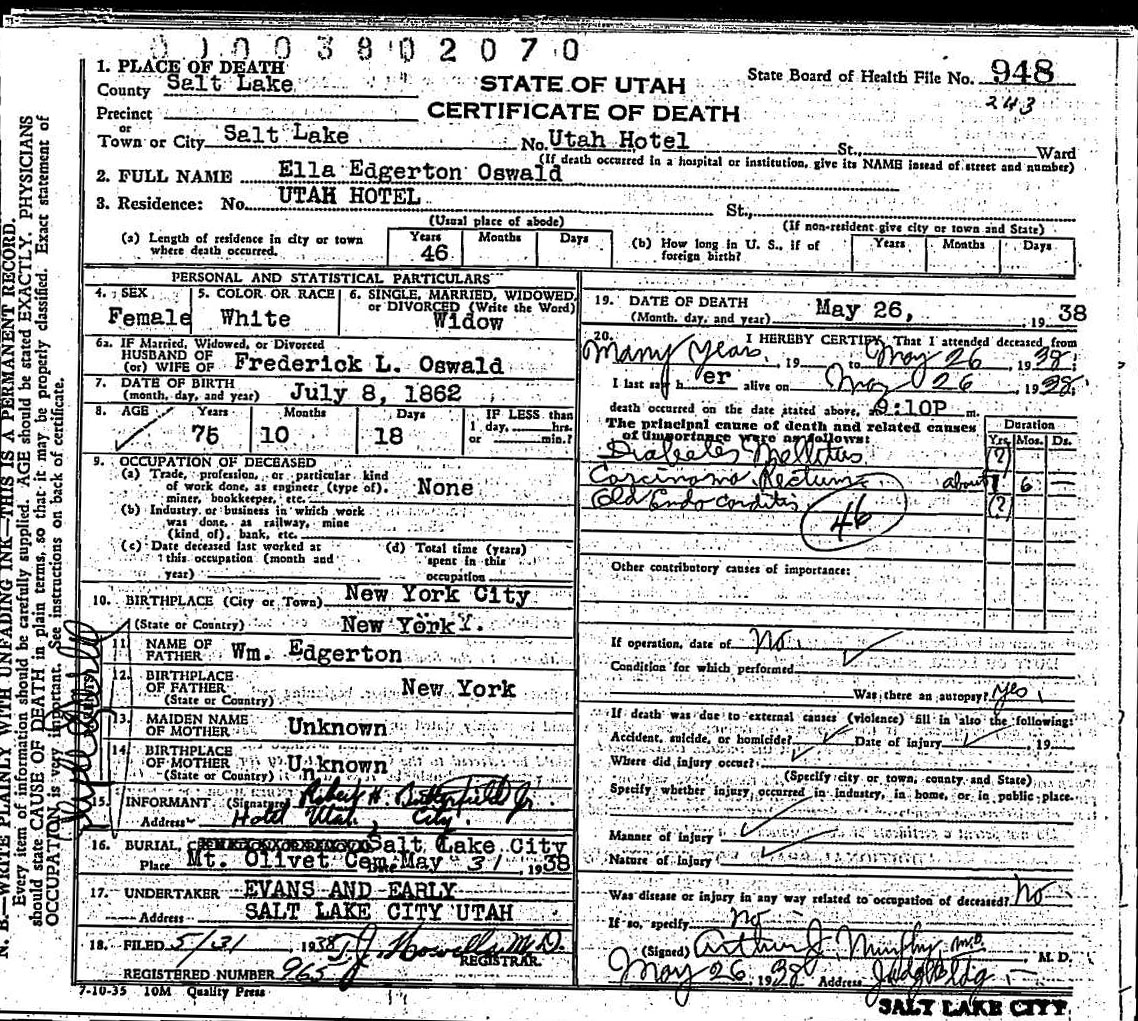 0 1 0 0 3 8 0 2 0 7 0
1. PLACE OF DEATH
County Salt Lake
STATE OF UTAH
CERTIFICATE OF DEATH
State Board of Health File No. 948
243
Precinct
or
Town or City Salt Lake No. Utah Hotel St., Ward
(If death occurred in a hospital or institution, give its NAME insead of street and number)
2. FULL NAME Ella Edgerton Oswald
3. Residence: No. UTAH HOTEL St.,
(Usual place of abode) (If non-resident give city or town and State)
(a) Length of residence in city or town where death occurred. Years 46 Months Days
(b) How long in U. S., if of foreign birth? Years Months Days
PERSONAL AND STATISTICAL PARTICULARS
4. SEX Female
5. COLOR OR RACE White
6. SINGLE, MARRIED, WIDOWED, or DIVORCED (Write the Word) Widow
6a. IF Married, Widowed, or Divorced
HUSBAND OF
(or) WIFE OF Frederick L. Oswald
7. DATE OF BIRTH
(month, day, and year) July 8, 1862
8. AGE Years 75 Months 10 Days 18 IF LESS than 1 day, hrs. or min.?
9. OCCUPATION OF DECEASED
(a) Trade, profession, or particular kind of work done, as engineer (type of), miner, bookkeeper, etc. None
(b) Industry or business in which work was done, as railway, mine (kind of), bank, etc.
(c) Date deceased last worked at this occupation (month and year)
(d) Total time (years) spent in this occupation
10. BIRTHPLACE (City or Town) New York City
(State or Country) New York Y.
11. NAME OF FATHER Wm. Edgerton
12. BIRTHPLACE OF FATHER New York
(State or Country)
13. MAIDEN NAME OF MOTHER Unknown
14. BIRTHPLACE OF MOTHER Unknown
(State or Country)
PARENTS
15. INFORMANT (Signature) Robert H. Butterfield Jr
Address Hotel Utah, City.
16. BURIAL, Salt Lake City
Place Mt. Olivet Cem. Date May 31, 1938
17. UNDERTAKER EVANS AND EARLY
Address SALT LAKE CITY UTAH
18. FILED 5/31 1938 T J Howells M.D. REGISTRAR.
REGISTERED NUMBER 965
7-10-35 10M Quality Press
19. DATE OF DEATH
(Month, day, and year) May 26, , 19 38
20. I HEREBY CERTIFY, That I attended deceased from
Many years, 19 to May 26, 1938;
I last saw h er alive on May 26 1938;
death occurred on the date stated above, at 9:10P m.
The principal cause of death and related causes of importance were as follows:
Duration
Yrs. Mos. Ds.
Diabetes Mellitus (?)
Carcinoma Rectum about 1 6
Old Endocarditis (?)
46
Other contributory causes of importance:
If operation, date of No.
Condition for which performed
Was there an autopsy? yes.
If death was due to external causes (violence) fill in also the following:
Accident, suicide, or homicide? Date of injury , 19
Where did injury occur?
(Specify city or town, county and State)
Specify whether injury occurred in industry, in home, or in public place.
Manner of injury
Nature of injury
Was disease or injury in any way related to occupation of deceased? No
If so, specify No
(Signed) Arthur J. Murphy M.D. M. D.
May 26, 1938 Address Judge Bldg
SALT LAKE CITY
N. B.—WRITE PLAINLY WITH UNFADING INK—THIS IS A PERMANENT RECORD.
Every item of information should be carefully supplied. AGE should be stated EXACTLY. PHYSICIANS
should state CAUSE OF DEATH in plain terms, so that it may be properly classified. Exact statement of
OCCUPATION is very important. See instructions on back of certificate.